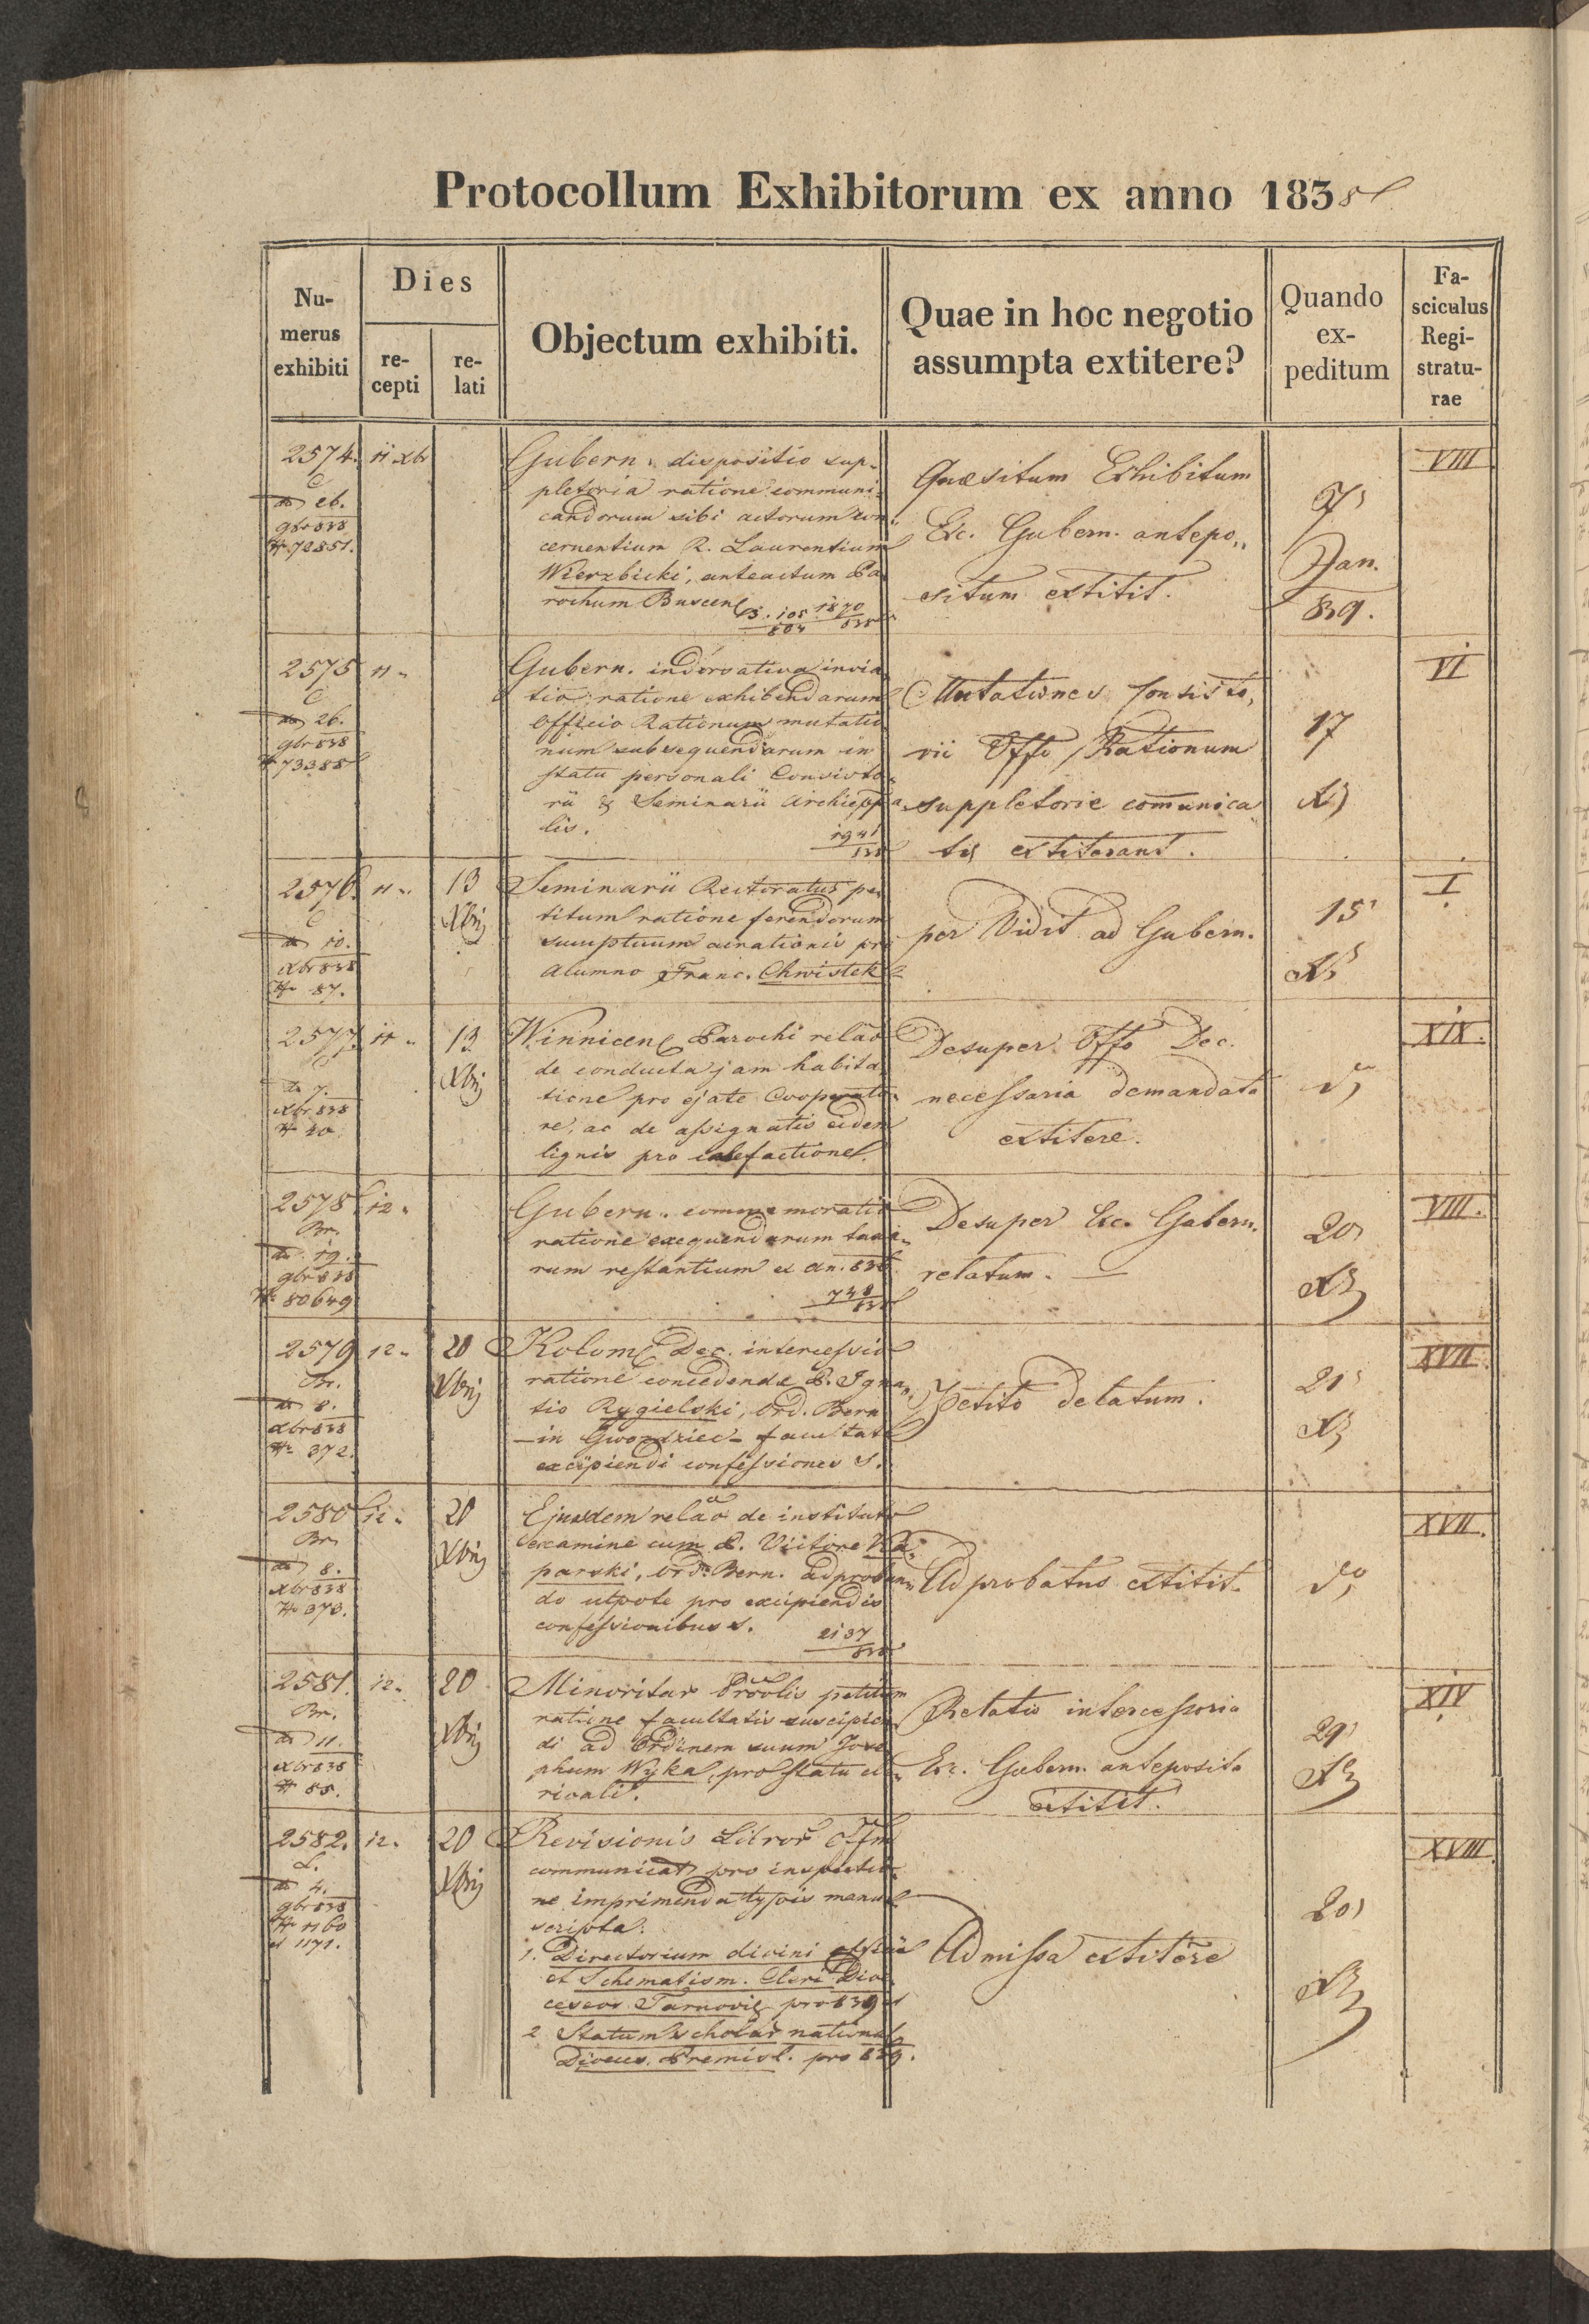 Protocollum Exhibitorum ex anno 1838
Nu-
merus
exhibiti
Dies
re-
cepti
re-
lati
Objectum exhibiti.
Quae in hoc negotio
assumpta extitere?
Quando
ex-
peditum
Fa-
sciculus
Regi-
stratu-
rae
2574. 11 xbr
26.
9br 838
72851.
Gubern. dispositio sup-
pletoria ratione communi-
candorum sibi actorum con-
cernentium R. Laurentium
Wierzbicki, anteactum Pa-
rochum Buscen
1870
838
Quæsitum Exhibitum
Exc. Gubern. antepo„
situm extitit.
7
Jan.
839.
VIII
2575 11 „
26.
9br 838
73388
Gubern. indorsativa invia
tio ratione exhibendarum
Officio Rationum mutatio
num subsequendarum in
statu personali Consisto-
rii & Seminarii Archiepp
lis.
1941
838
Mutationes Consisto,
rii Offo Rationum
suppletorie comunica
tæ extiterant.
17
VI
2576. 11 „ 13
Xbrj
10.
xbr 838
87.
Seminarii Rectoratus pe-
titum ratione ferendorum
sumptuum curationis pro
Alumno Franc. Chwistek
per Vidit ad Gubern.
15
I
2577. 11 „ 13
Xbrj
7.
xbr 838
40.
Winnicen Parochi relao
de conducta jam habita-
tione pro ejate Cooperato-
re, ac de assignatis eidem
lignis pro calefactione.
Desuper Offo Dec.
necessaria demandata
extitere.
XIX.
2578 12 „
Br.
19.
9br 838
80649
Gubern. commemoratio
ratione exequendarum taxa-
rum restantium ex an. 836
748
838
Desuper Exc. Gubern.
relatum. —
20
VIII.
2579 12 „ 20
Br. Xbrj
8.
xbr 838
372.
Kolom Dec. intercessio
ratione concedendæ P. Igna-
tio Rygielski, Ord. Bern
— in Gwozdziec — facultate
excipiendi confessiones s.
Petito delatum.
21
XVII.
2580 12 „ 20
Br. Xbrj
8.
xbr 838
373.
Ejusdem relao de instituto
examine cum P. Victore
parski, Ord. Bern. adproban-
do utpote pro excipiendis
confessionibus s.
2137
838
Adprobatus extitit.
do
XVII.
2581. 12 „ 20
Br. Xbrj
11.
xbr 838
88.
Minoritar Provlis petitum
ratione facultatis suscipien
di ad Ordinem suum Jose
phum Wyka, pro statu cle-
ricali.
Relatio intercessoria
Exc. Gubern. anteposita
extitit.
29
XIV
2582. 12 „ 20
L. Xbrj
4.
9br 838
1160
et 1171.
Revisionis Libror Offm
communicat pro inspectio-
ne imprimenda typis manu
scripta:
1. Directorium divini officii
et Schematism. Cleri Dioe
ceseos Tarnovi pro 839 et
2 Statum scholar national
Dioeces. Premisl. pro 839.
Admissa extitere
20
XVIII.